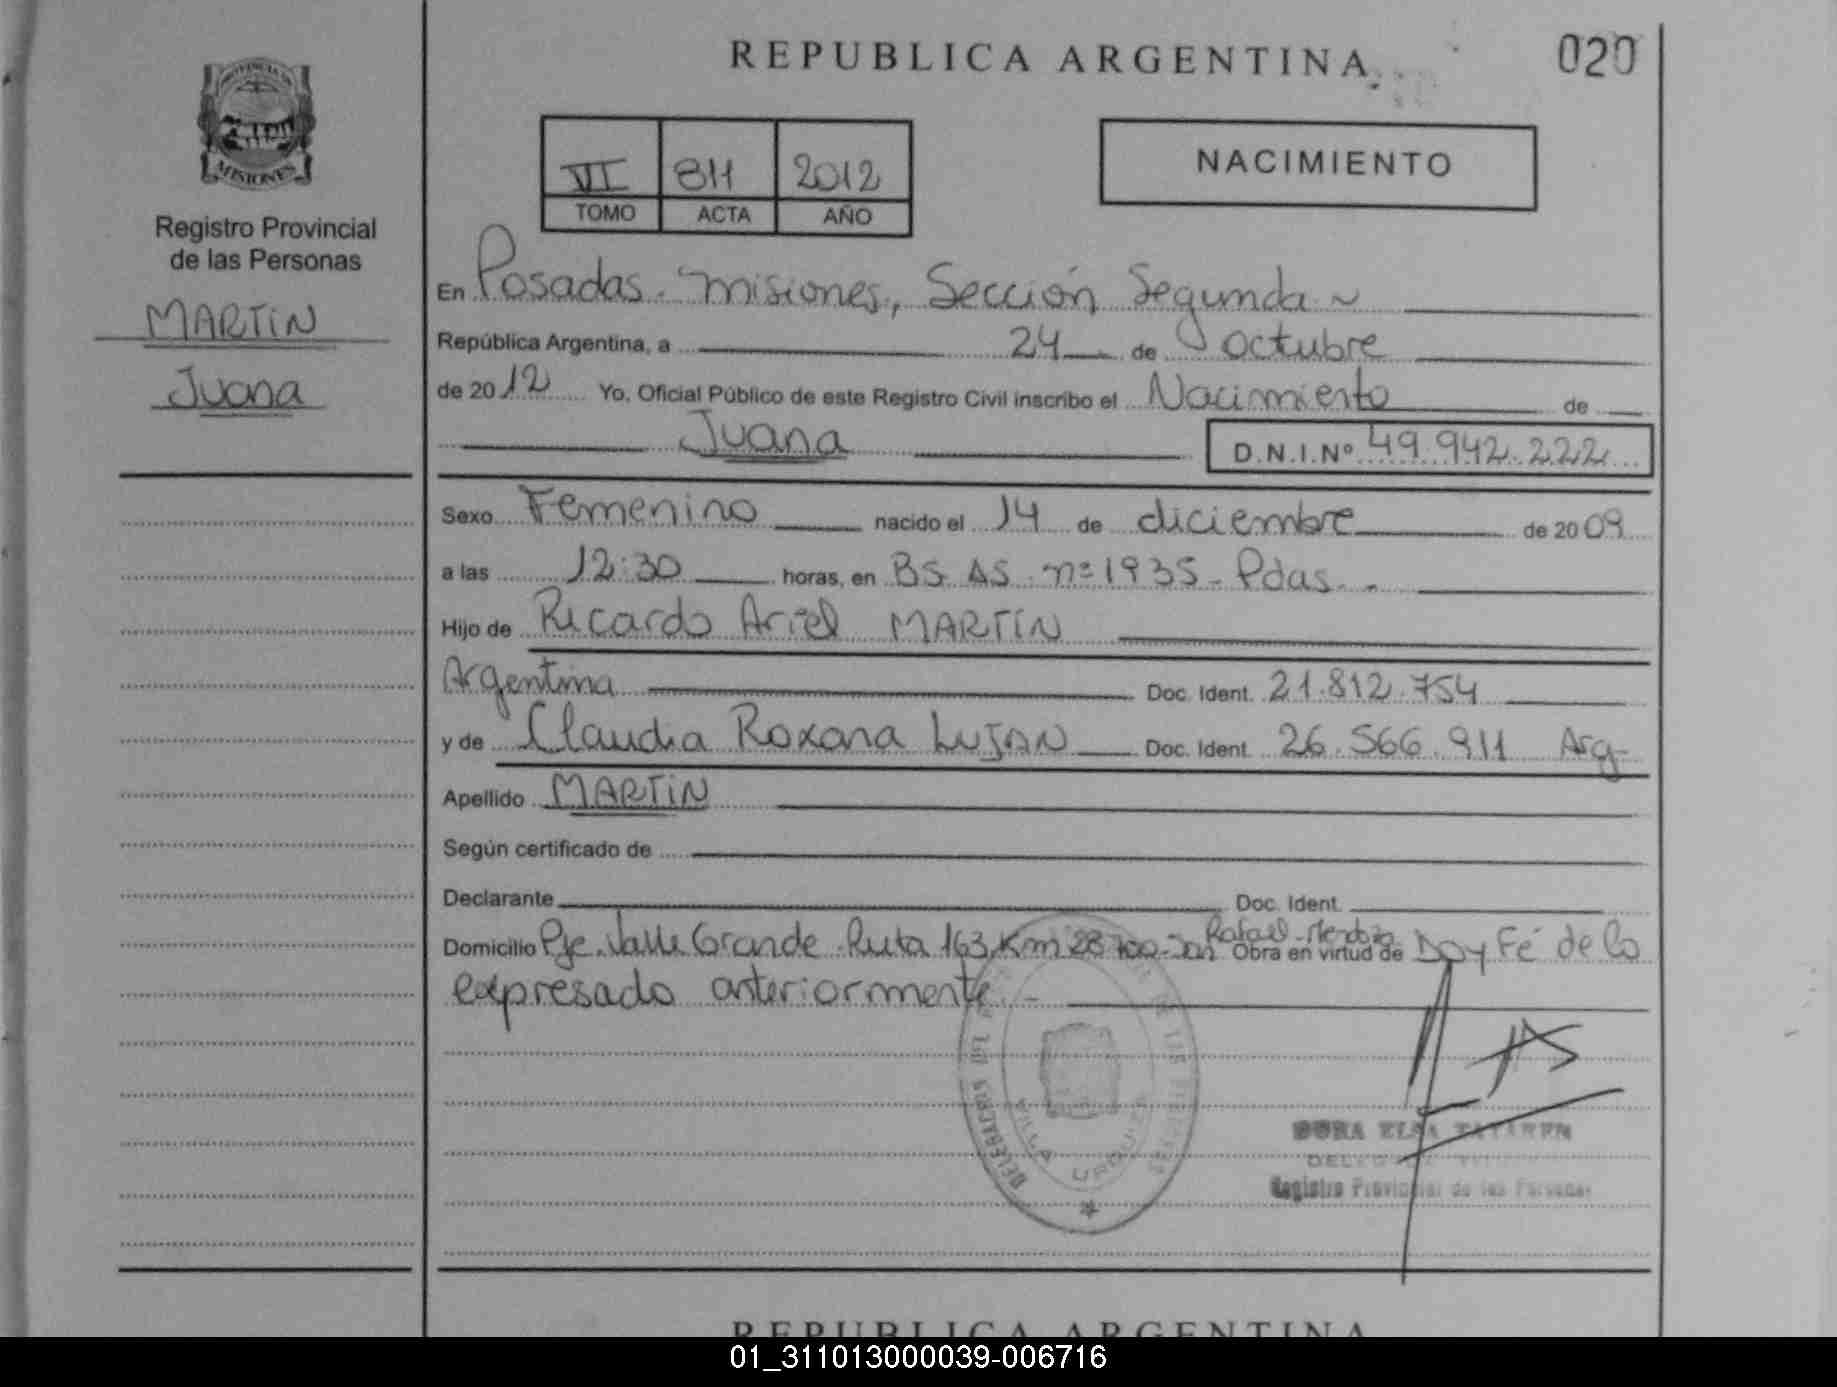 REPUBLICA ARGENTINA
020
PROVINCIA DE
MISIONES
Registro Provincial
de las Personas
MARTIN
Juana
VI 811 2012
TOMO ACTA AÑO
NACIMIENTO
En Posadas. Misiones, Sección Segunda
República Argentina, a 24 de octubre
de 2012 Yo, Oficial Público de este Registro Civil inscribo el Nacimiento de
Juana D.N.I.Nº 49.942.222
Sexo Femenino nacido el 14 de diciembre de 2009
a las 12:30 horas, en BS. AS. nº 1935 - Pdas.
Hijo de Ricardo Ariel MARTIN
Argentina Doc. Ident. 21.812.754
y de Claudia Roxana LUJAN Doc. Ident. 26.566.911 Arg-
Apellido MARTIN
Según certificado de
Declarante Doc. Ident.
Domicilio Pje. Valle Grande Ruta 163 Km 28 700 San Rafael - Mendoza Obra en virtud de Doy Fé de lo
expresado anteriormente. -
VILLA URQUIZA
DORA ELSA
Registro Provincial de las Personas
REPUBLICA ARGENTINA
01_311013000039-006716